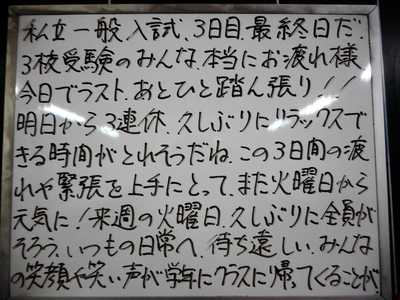 私立一般入試、3日目、最終日だ!
3校受験のみんな、本当にお疲れ様
今日でラスト、あとひと踏ん張り!!
明日から3連休、久しぶりにリラックスで
きる時間がとれそうだね。この3日間の疲
れや緊張を上手にとって、また火曜日から
元気に!来週の火曜日、久しぶりに全員が
そろう、いつもの日常へ。待ち遠しい、みんな
の笑顔や笑い声が学年にクラスに帰ってくることが。